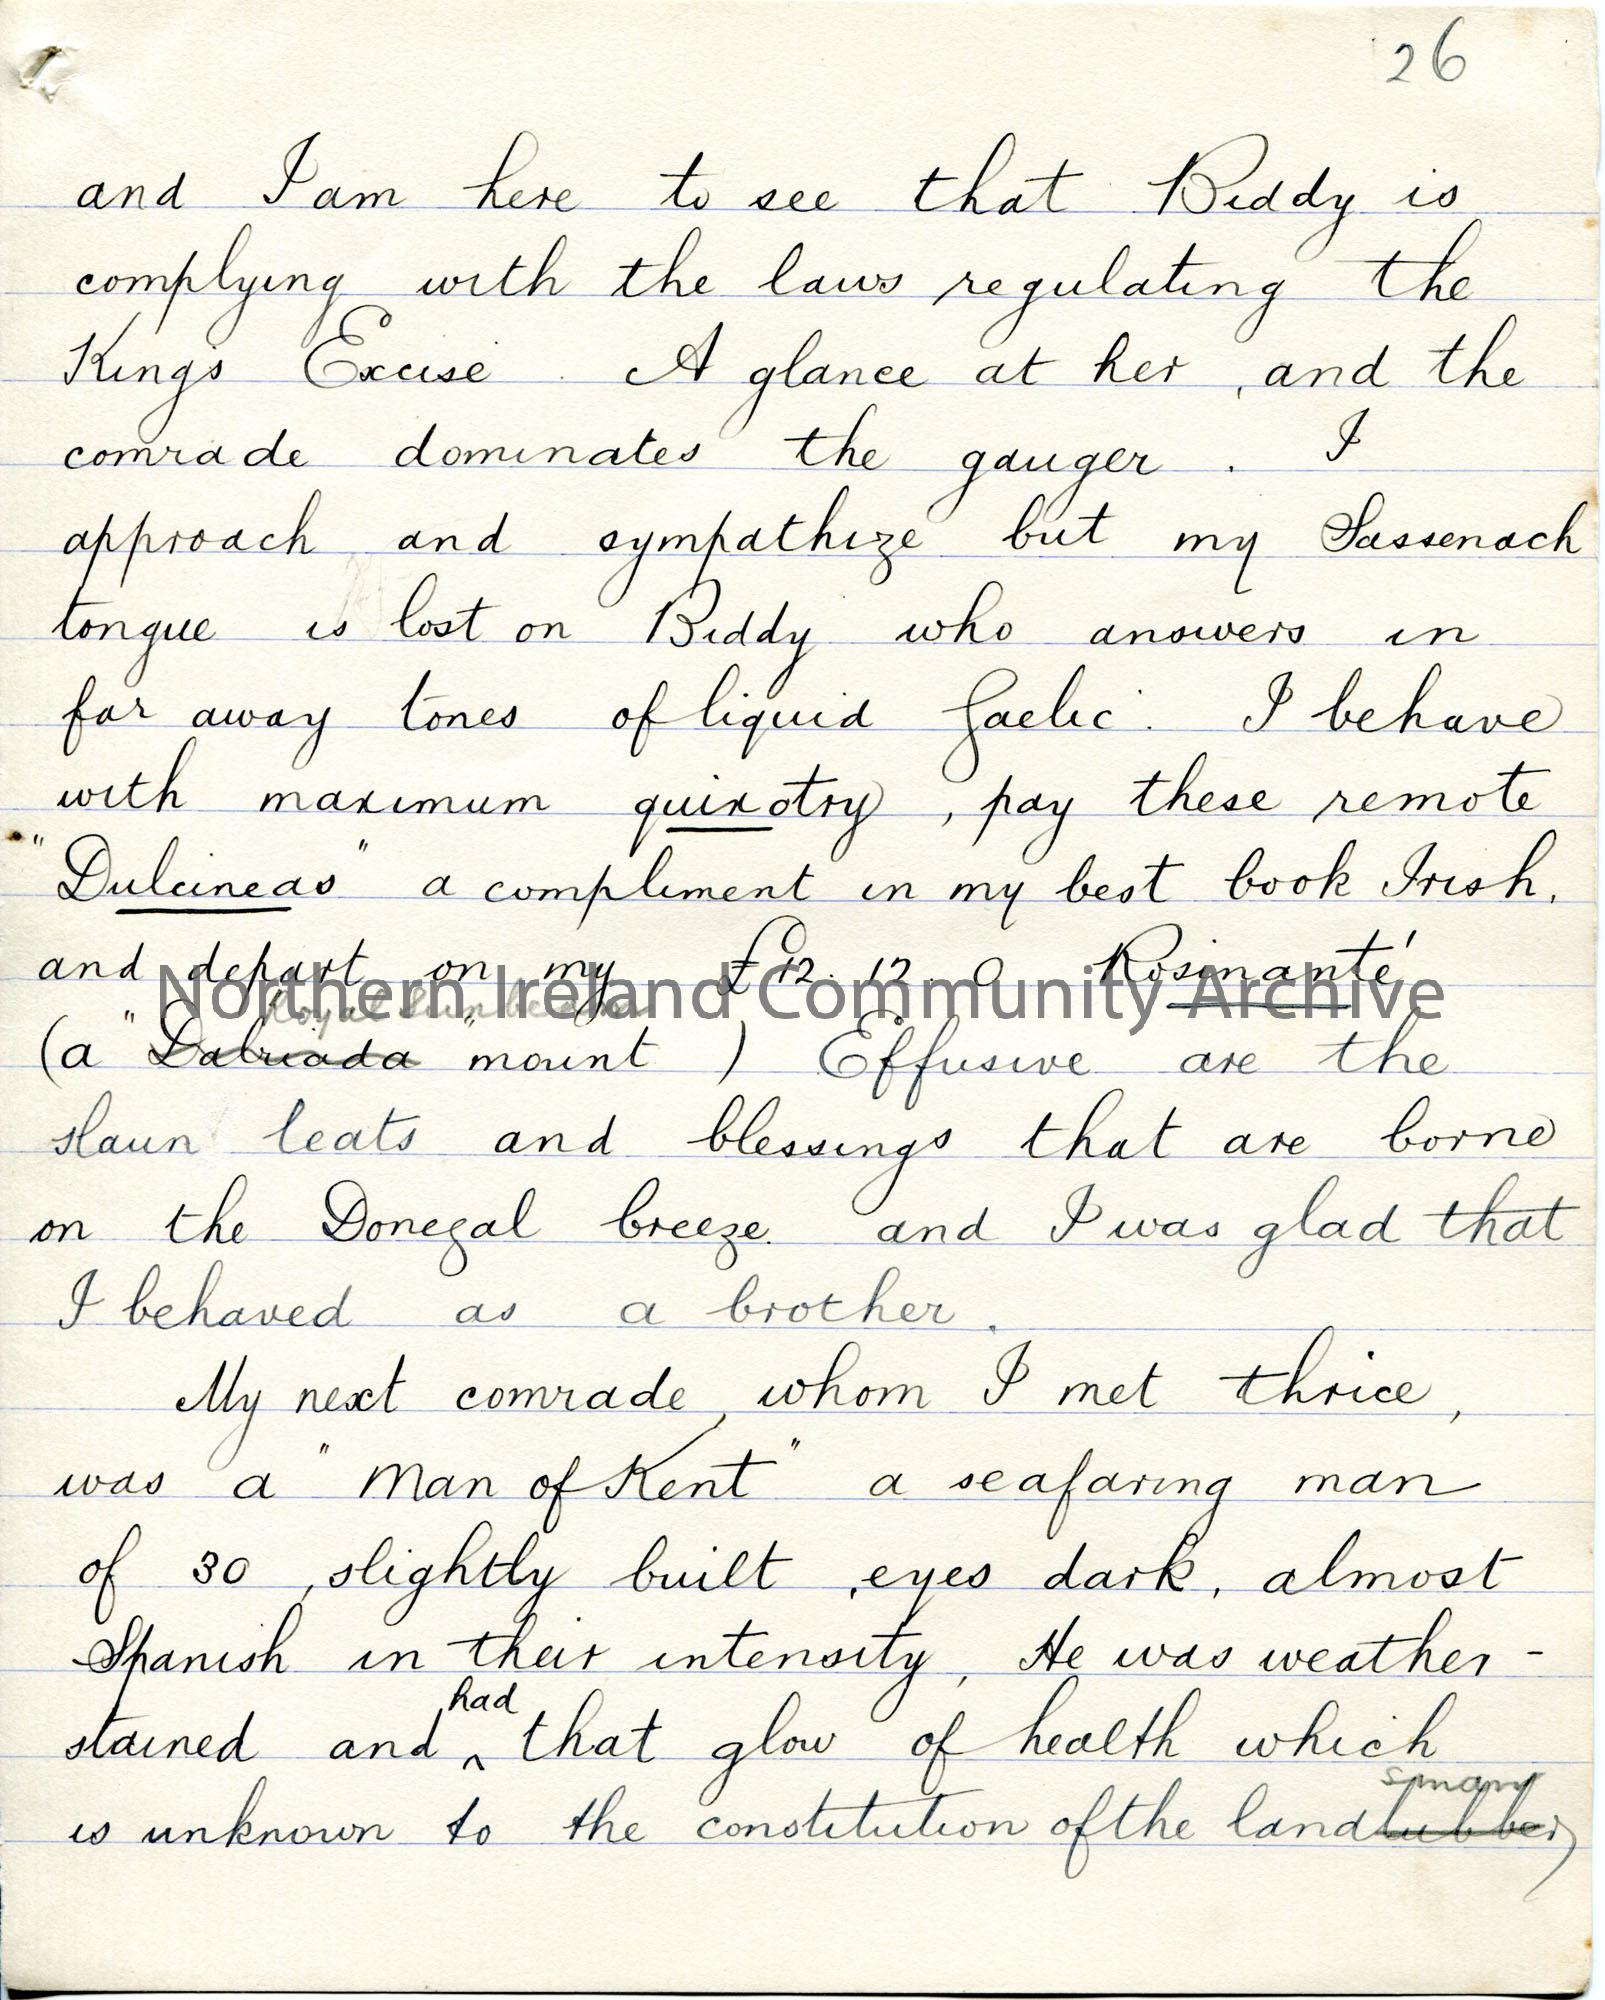 26
and I am here to see that Biddy is
complying with the laws regulating the
King's Excise. A glance at her, and the
comrade dominates the gauger. I
approach and sympathize but my Sassenach
tongue is lost on Biddy who answers in
far away tones of liquid Gaelic. I behave
with maximum quixotry, pay these remote
"Dulcineas" a compliment in my best book Irish,
and depart on my £12. 12. 0 Rosinanté
Northern Ireland Community Archive
Royal Sunbeam
(a "Dalriada" mount) Effusive are the
slaun leats and blessings that are borne
on the Donegal breeze. and I was glad that
I behaved as a brother.
My next comrade, whom I met thrice,
was a "Man of Kent" a seafaring man
of 30, slightly built, eyes dark, almost
Spanish in their intensity, He was weather-
had
stained and ^ that glow of health which
is unknown to the constitution of the landlubber,